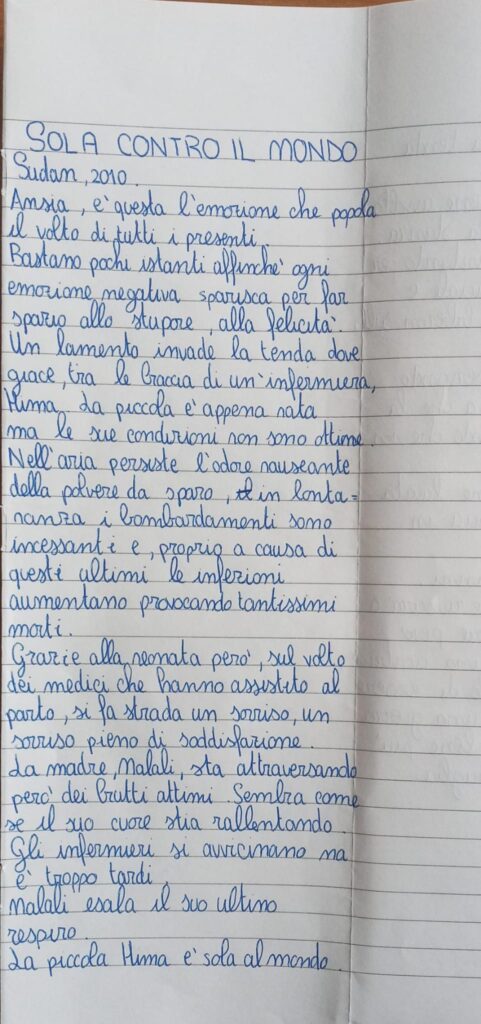 SOLA CONTRO IL MONDO
Sudan, 2010.
Ansia, è questa l'emozione che popola
il volto di tutti i presenti.
Bastano pochi istanti affinchè ogni
emozione negativa sparisca per far
spazio allo stupore, alla felicità.
Un lamento invade la tenda dove
giace, tra le braccia di un'infermiera,
Hima. La piccola è appena nata
ma le sue condizioni non sono ottime.
Nell'aria persiste l'odore nauseante
della polvere da sparo, in lonta=
nanza i bombardamenti sono
incessanti e, proprio a causa di
questi ultimi le infezioni
aumentano provocando tantissimi
morti.
Grazie alla neonata però, sul volto
dei medici che hanno assistito al
parto, si fa strada un sorriso, un
sorriso pieno di soddisfazione.
La madre, Malali, sta attraversando
però dei brutti attimi. Sembra come
se il suo cuore stia rallentando.
Gli infermieri si avvicinano ma
è troppo tardi.
Malali esala il suo ultimo
respiro.
La piccola Hima è sola al mondo.